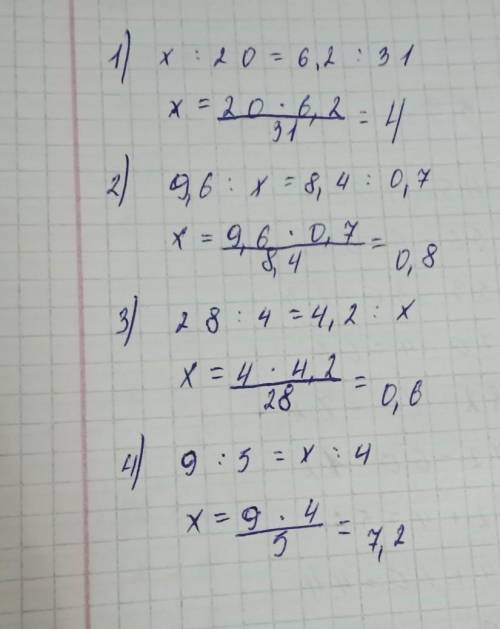 1) x : 20 = 6,2 : 31
x = 20 · 6,2 / 31 = 4
2) 9,6 : x = 8,4 : 0,7
x = 9,6 · 0,7 / 8,4 = 0,8
3) 28 : 4 = 4,2 : x
x = 4 · 4,2 / 28 = 0,6
4) 9 : 5 = x : 4
x = 9 · 4 / 5 = 7,2